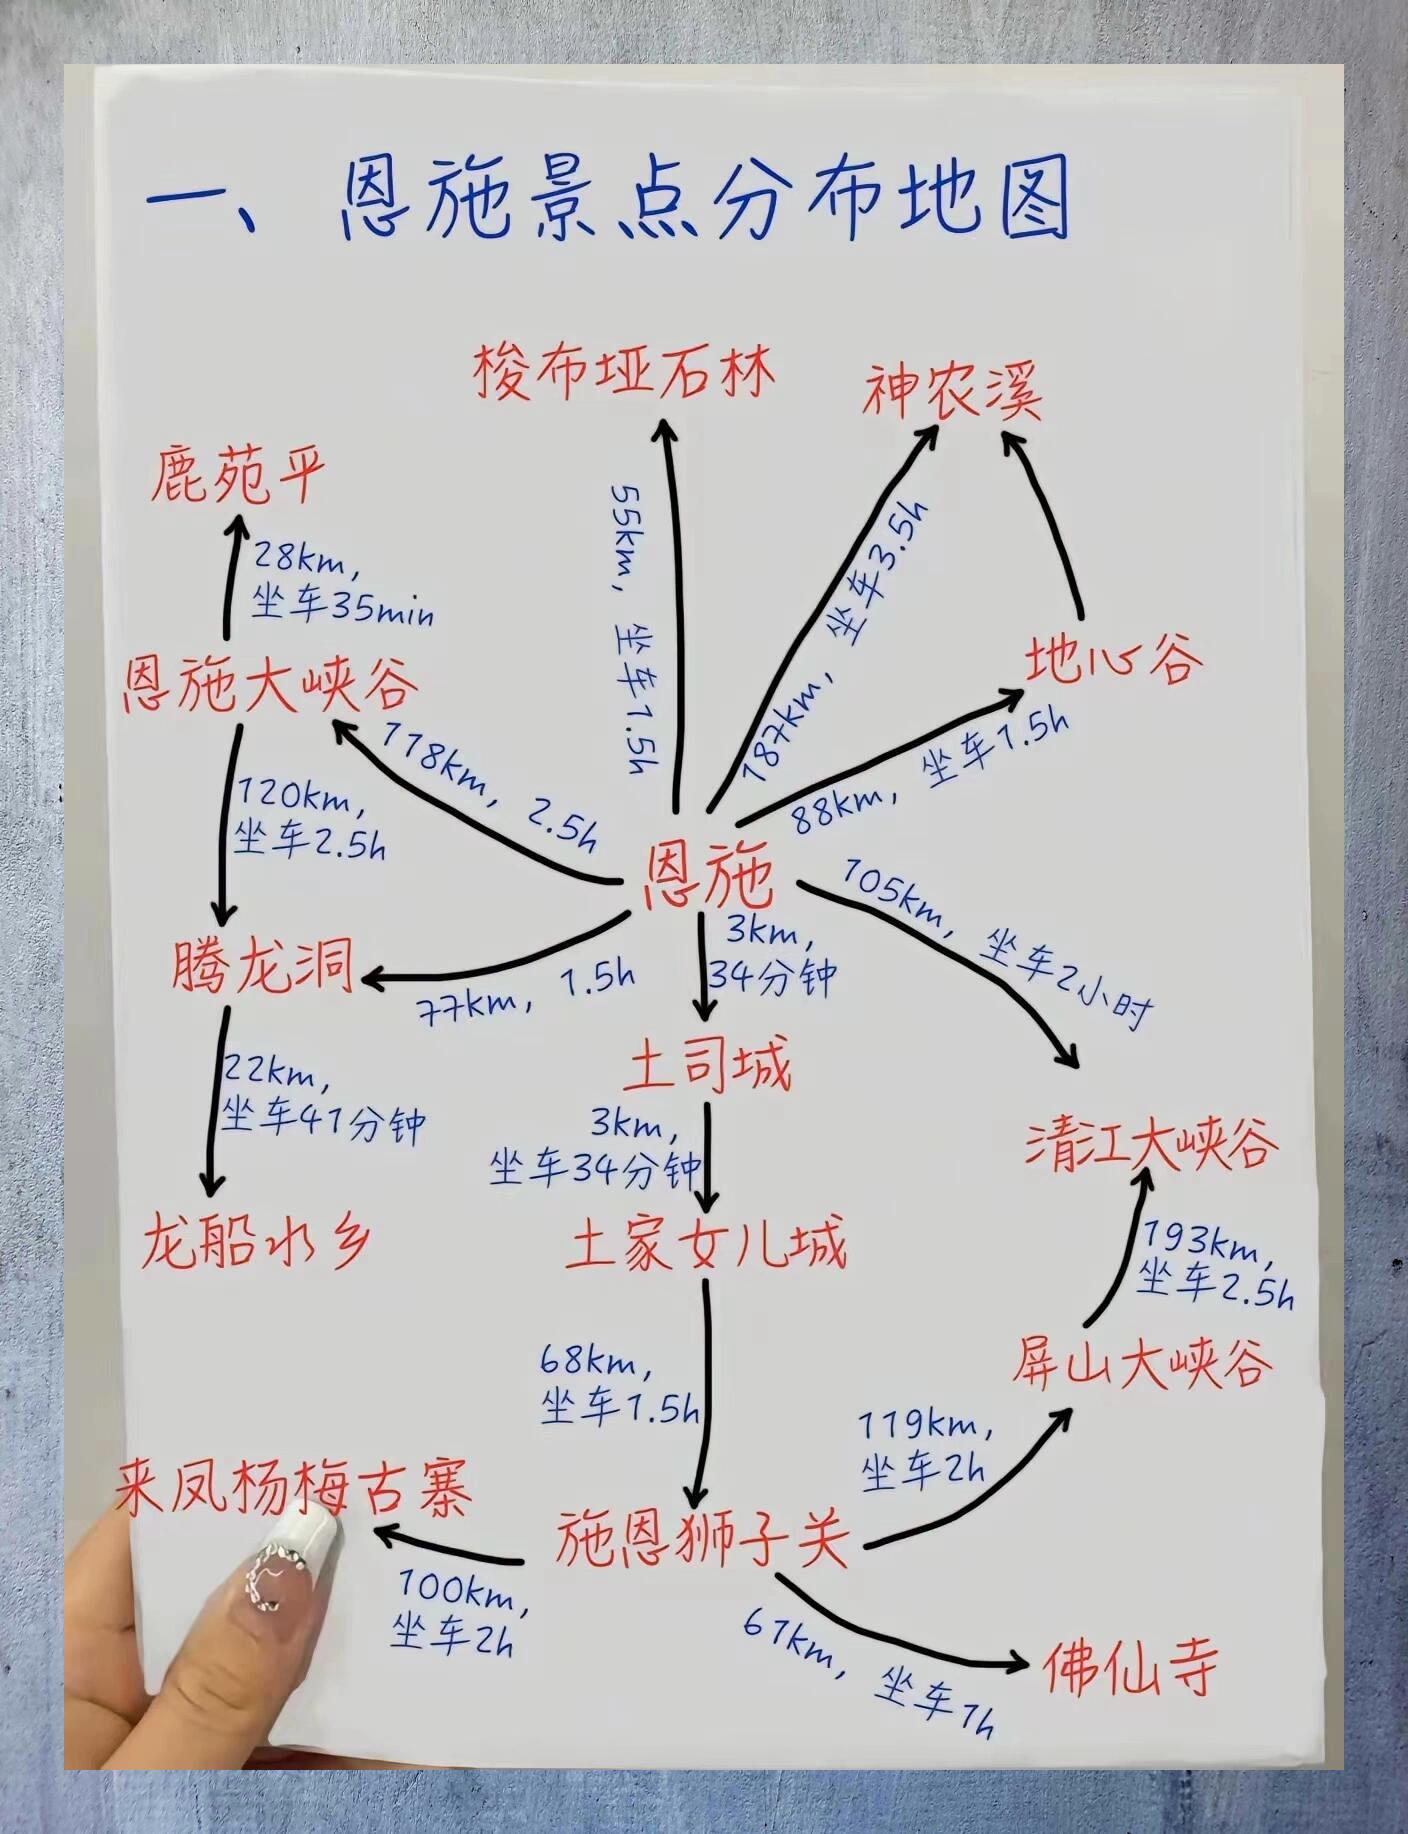 一、恩施景点分布地图
梭布垭石林
神农溪
鹿苑平
28km,
坐车35min
55km, 坐车1.5h
187km, 坐车3.5h
地心谷
恩施大峡谷
118km, 2.5h
88km, 坐车1.5h
120km,
坐车2.5h
恩施
105km, 坐车2小时
3km,
34分钟
腾龙洞
77km, 1.5h
土司城
22km,
坐车41分钟
3km,
坐车34分钟
清江大峡谷
龙船水乡
土家女儿城
193km,
坐车2.5h
68km,
坐车1.5h
屏山大峡谷
119km,
坐车2h
来凤杨梅古寨
施恩狮子关
100km,
坐车2h
61km, 坐车1h
佛仙寺